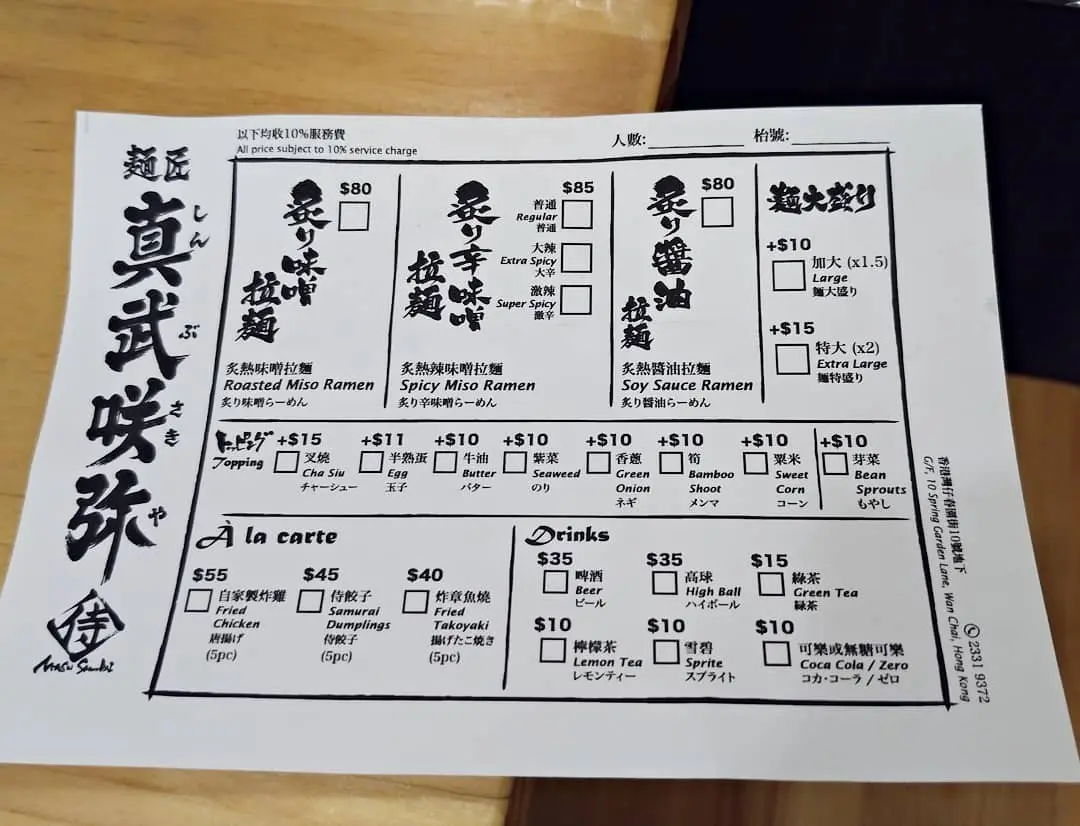 以下均收10%服務費
All price subject to 10% service charge
人數:
枱號:
麵匠
真武咲弥
しん
ぶ
さき
や
侍
炙り味噌
拉麵
$80
炙熱味噌拉麵
Roasted Miso Ramen
炙り味噌らーめん
炙り辛味噌
拉麵
$85
普通
Regular
普通
大辣
Extra Spicy
大辛
激辣
Super Spicy
激辛
炙熱辣味噌拉麵
Spicy Miso Ramen
炙り辛味噌らーめん
炙り醬油
拉麵
$80
炙熱醬油拉麵
Soy Sauce Ramen
炙り醬油らーめん
麵大盛り
+$10
加大 (x1.5)
Large
麵大盛り
+$15
特大 (x2)
Extra Large
麵特盛り
トッピング
Topping
+$15
叉燒
Cha Siu
チャーシュー
+$11
半熟蛋
Egg
玉子
+$10
牛油
Butter
バター
+$10
紫菜
Seaweed
のり
+$10
香蔥
Green
Onion
ネギ
+$10
筍
Bamboo
Shoot
メンマ
+$10
粟米
Sweet
Corn
コーン
+$10
芽菜
Bean
Sprouts
もやし
À la carte
$55
自家製炸雞
Fried
Chicken
唐揚げ
(5pc)
$45
侍餃子
Samurai
Dumplings
侍餃子
(5pc)
$40
炸章魚燒
Fried
Takoyaki
揚げたこ焼き
(5pc)
Drinks
$35
啤酒
Beer
ビール
$35
高球
High Ball
ハイボール
$15
綠茶
Green Tea
緑茶
$10
檸檬茶
Lemon Tea
レモンティー
$10
雪碧
Sprite
スプライト
$10
可樂或無糖可樂
Coca Cola / Zero
コカ・コーラ / ゼロ
香港灣仔春園街10號地下
G/F, 10 Spring Garden Lane, Wan Chai, Hong Kong
2331 9372